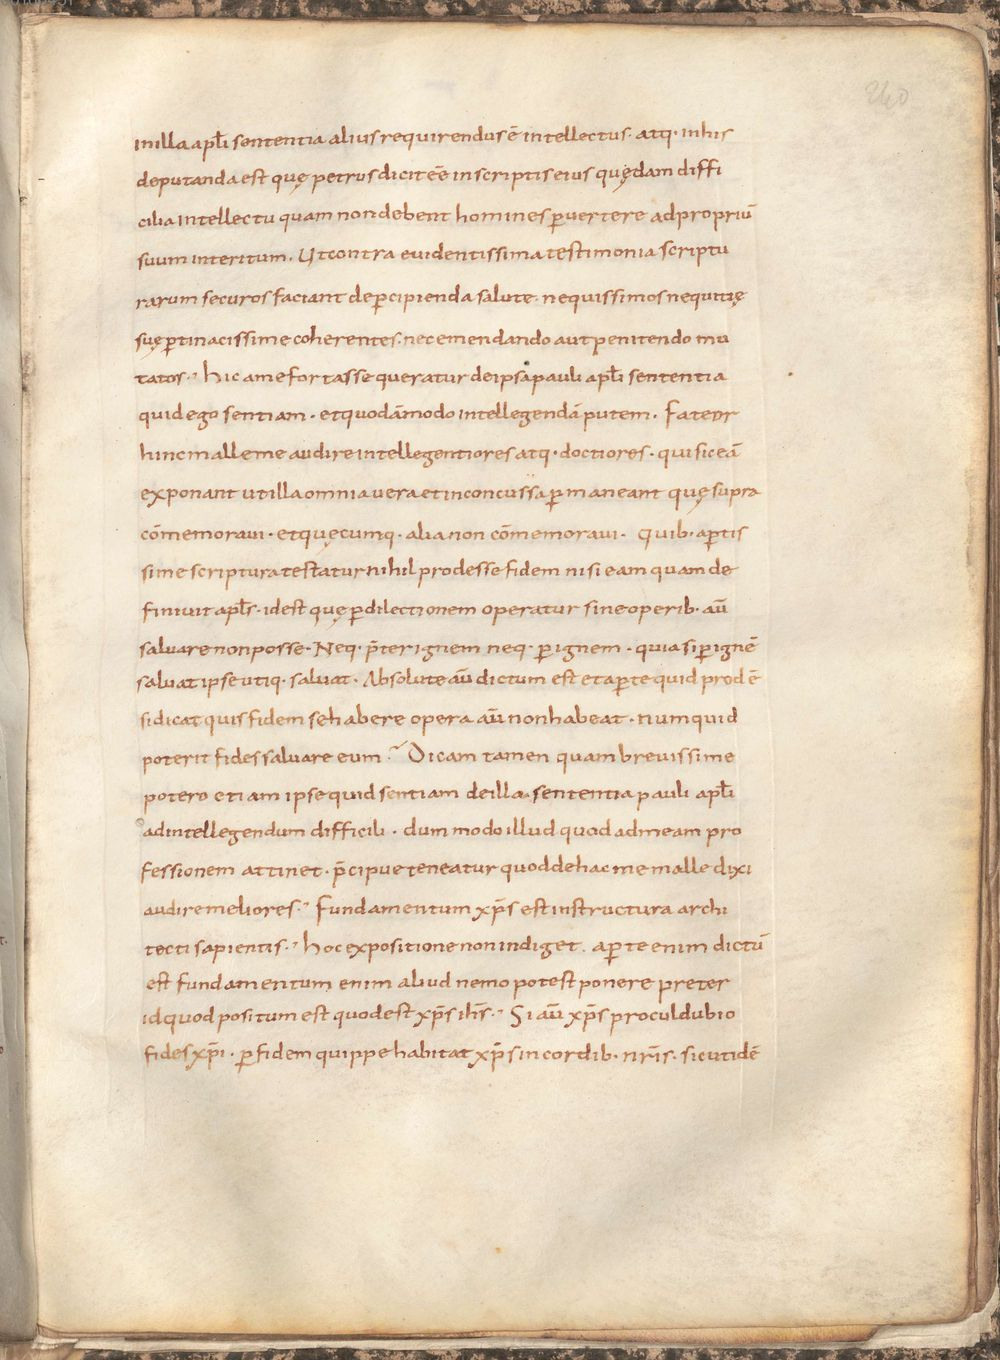 240
inilla apłi sententia alius requirendus ē intellectus· atq· inhis
deputanda est quę petrus dicit eē inscriptis eius quędam diffi
cilia intellectu quam non debent homines ꝑvertere ad propriū
suum interitum. Ut contra evidentissima testimonia scriptu
rarum securos faciant de ꝑcipienda salute· nequissimos nequitię
suę ꝑtinacissime coherentes· nec emendando aut penitendo mu
tatos·, hic ame fortasse queratur de ipsa pauli apłi sententia
quid ego sentiam· et quodāmodo intellegendā putem. Fateor
hinc malle me audire intellegentiores atq· doctiores· qui sic eā
exponant ut illa omnia vera et inconcussa ꝑmaneant quę supra
cōmemoravi· et quęcumq· alia non cōmemoravi· Quib· aꝑtis
sime scriptura testatur nihil prodesse fidem nisi eam quam de
finivit apłs· id est quę ꝑ dilectionem operatur sine operib· aū
salvare non posse· Neq· p̄ter ignem neq· ꝑ ignem· quia si ꝑ ignē
salvat ipse utiq· salvat· Absolute aū dictum est et aꝑte quid prod ē
si dicat quis fidem se habere opera aū non habeat· numquid
poterit fides salvare eum·~ Dicam tamen quam brevissime
potero etiam ipse quid sentiam de illa sententia pauli apłi
ad intellegendum difficili· dum modo illud quod ad meam pro
fessionem attinet· p̄cipue teneatur quod de hac me malle dixi
audire meliores·, Fundamentum xp̄s est in structura archi
tecti sapientis·, hoc expositione non indiget. aꝑte enim dictū
est fundamentum enim aliud nemo potest ponere preter
id quod positum est quod est xp̄s ih̄s·, Si aū xp̄s procul dubio
fides xp̄i· ꝑ fidem quippe habitat xp̄s in cordib· nr̄is· sicut idē